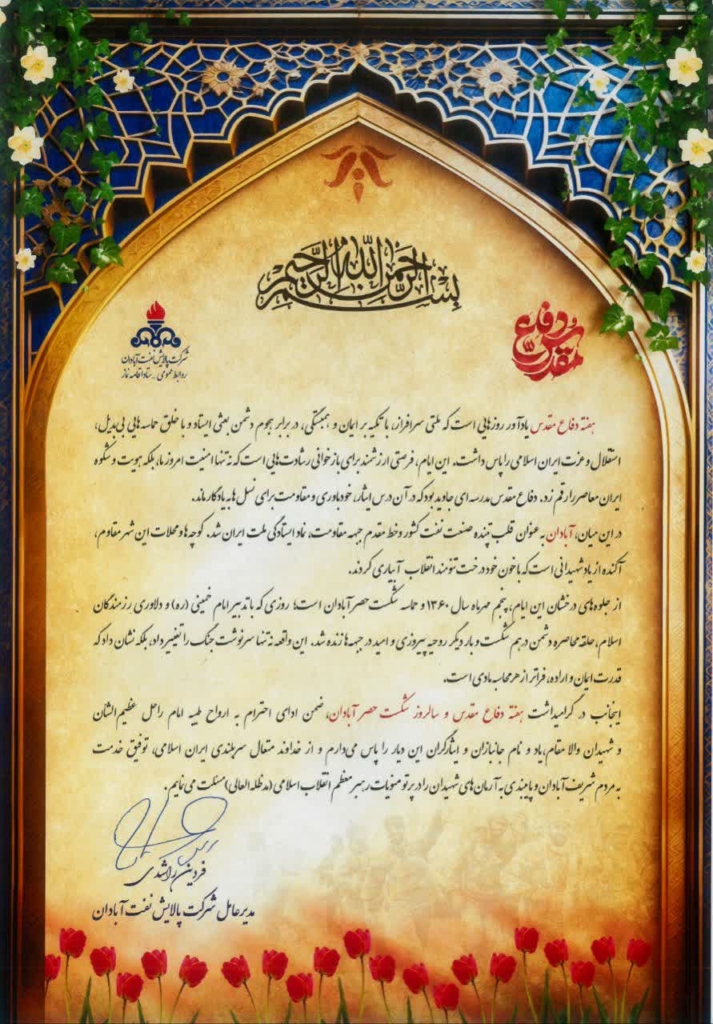 بسم الله الرحمن الرحیم
دفاع مقدس
شرکت پالایش نفت آبادان
روابط عمومی - ستاد اقامه نماز
هفته دفاع مقدس یادآور روزهایی است که ملتی سرافراز، با تکیه بر ایمان و همبستگی، در برابر هجوم دشمن بعثی ایستاد و با خلق حماسه هایی بی بدیل،
استقلال و عزت ایران اسلامی را پاس داشت. این ایام، فرصتی ارزشمند برای بازخوانی رشادت هایی است که نه تنها امنیت امروز ما، بلکه هویت و شکوه
ایران معاصر را رقم زد. دفاع مقدس مدرسه ای جاوید بود که در آن درس ایثار، خودباوری و مقاومت برای نسل ها به یادگار ماند.
در این میان، آبادان به عنوان قلب تپنده صنعت نفت کشور و خط مقدم جبهه مقاومت، نماد ایستادگی ملت ایران شد. کوچه ها و محلات این شهر مقاوم،
آکنده از یاد شهیدانی است که با خون خود درخت تنومند انقلاب آبیاری کردند.
از جلوه های درخشان این ایام، پنجم مهرماه سال ۱۳۶۰ و حماسه شکست حصر آبادان است؛ روزی که با تدبیر امام خمینی (ره) و دلاوری رزمندگان
اسلام، حلقه محاصره دشمن درهم شکست و بار دیگر روحیه پیروزی و امید در جبهه ها زنده شد. این واقعه نه تنها سرنوشت جنگ را تغییر داد، بلکه نشان داد که
قدرت ایمان و اراده، فراتر از هر محاسبه مادی است.
اینجانب در گرامیداشت هفته دفاع مقدس و سالروز شکست حصر آبادان، ضمن ادای احترام به ارواح طیبه امام راحل عظیم الشان
و شهیدان والا مقام، یاد و نام جانبازان و ایثارگران این دیار را پاس می دارم و از خداوند متعال سربلندی ایران اسلامی، توفیق خدمت
به مردم شریف آبادان و پایبندی به آرمان های شهیدان را در پرتو منویات رهبر معظم انقلاب اسلامی (مدظله العالی) مسئلت می نمایم.
فردین راشدی
مدیرعامل شرکت پالایش نفت آبادان